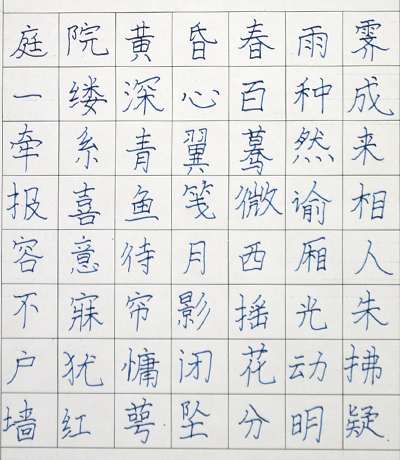 庭院黄昏春雨霁
一缕深心百种成
牵系青翼蓦然来
报喜鱼笺微谕相
容意待月西厢人
不寐帘影摇光朱
户犹慵闭花动拂
墙红萼坠分明疑